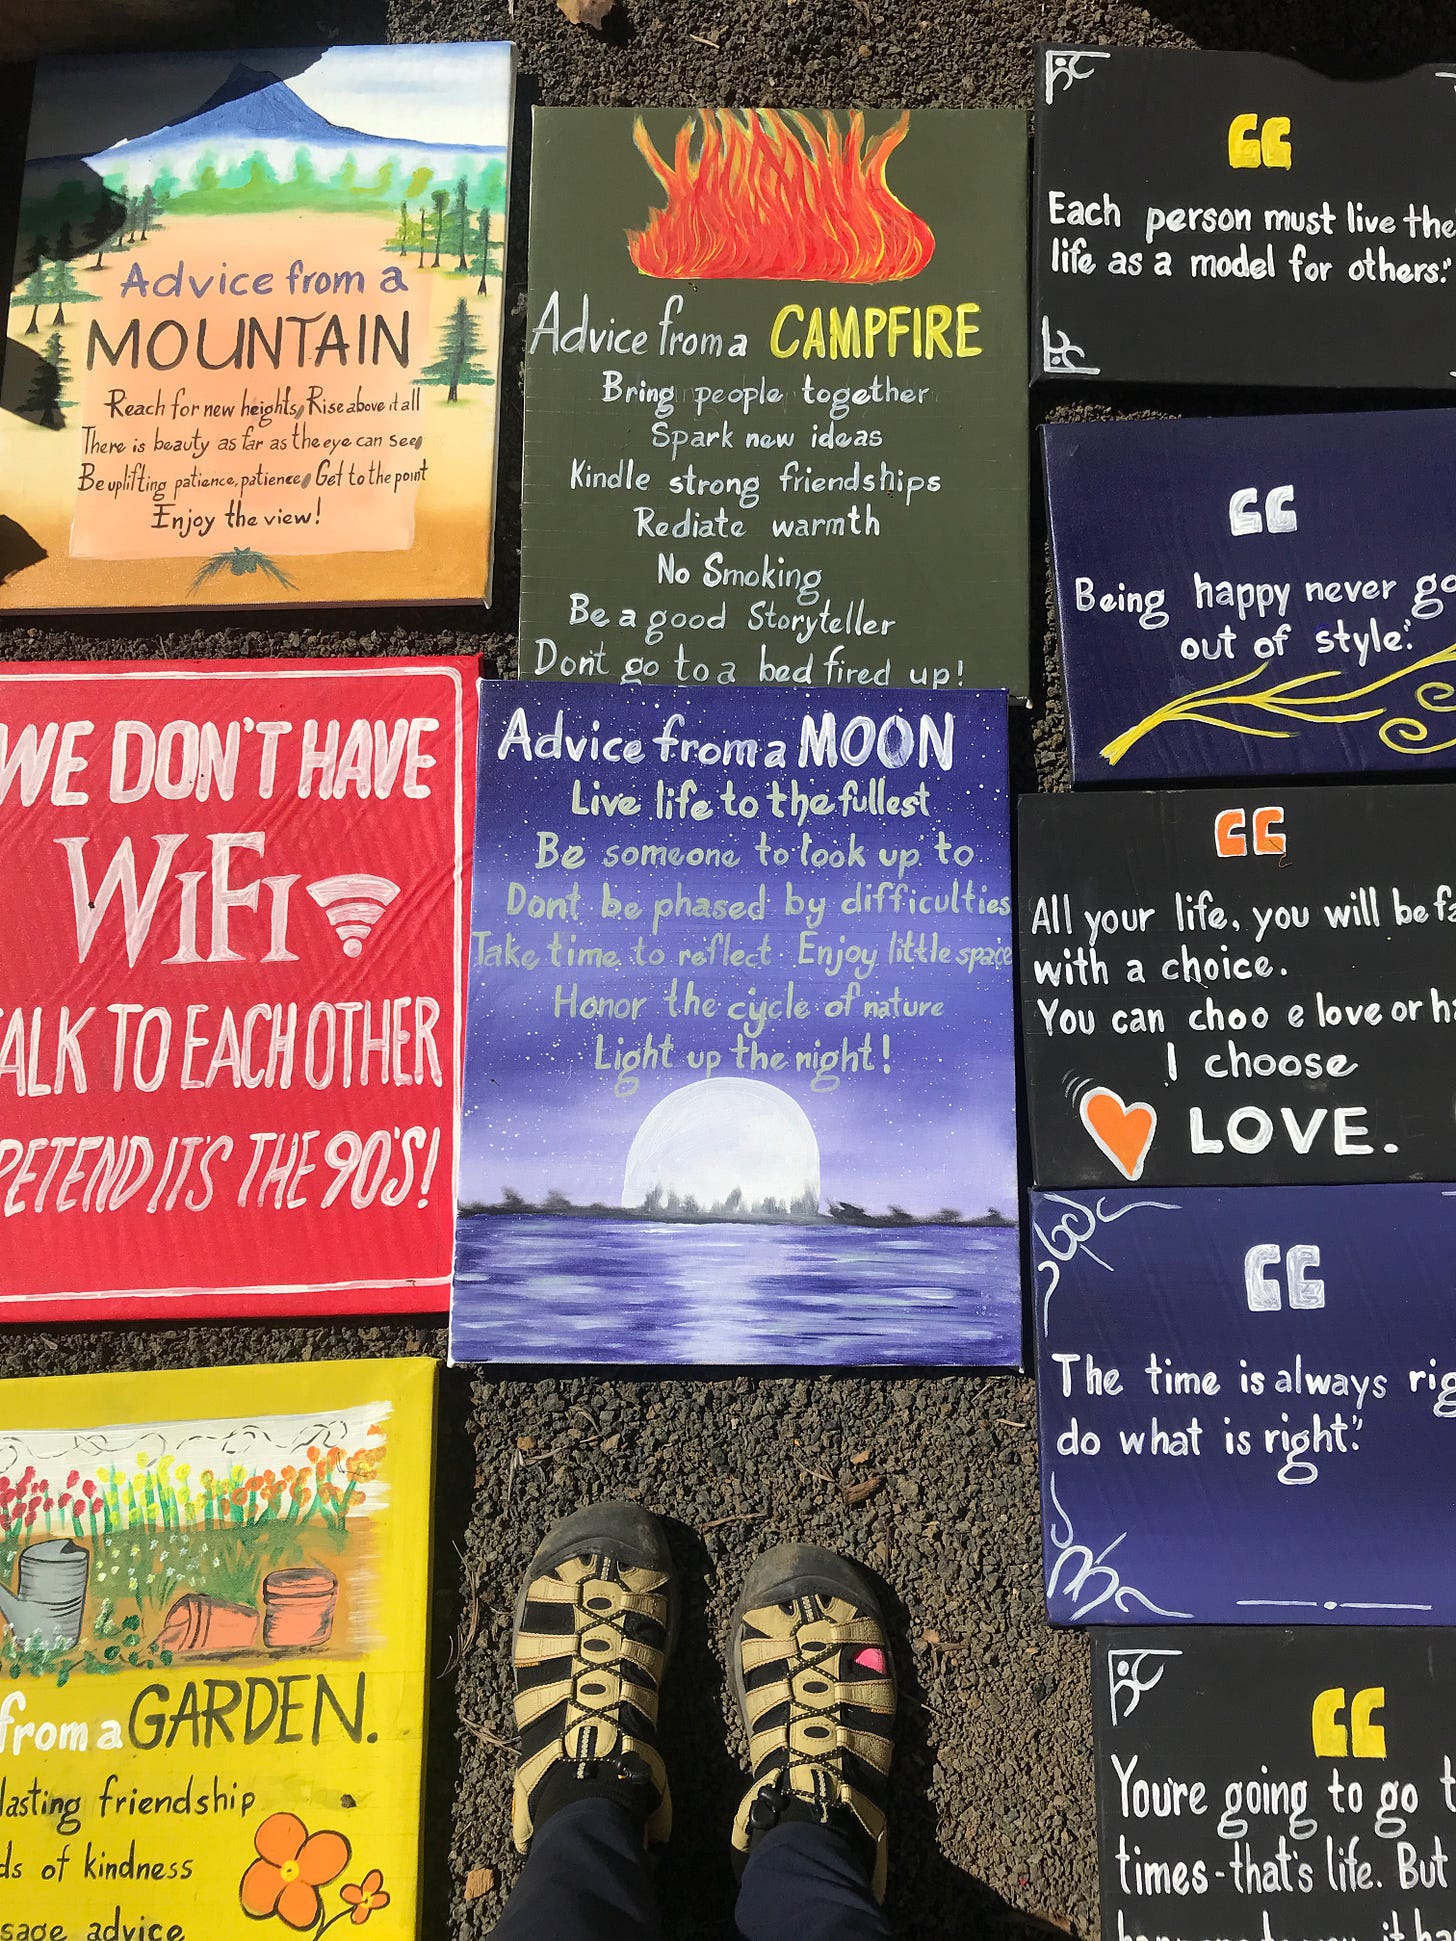 Advice from a
MOUNTAIN
Reach for new heights, Rise above it all
There is beauty as far as the eye can see,
Be uplifting patience, patience, Get to the point
Enjoy the view!
Advice from a CAMPFIRE
Bring people together
Spark new ideas
Kindle strong friendships
Rediate warmth
No Smoking
Be a good Storyteller
Don't go to a bed fired up!
“
Each person must live the
life as a model for others."
“
Being happy never go
out of style."
WE DON'T HAVE
WiFi
ALK TO EACH OTHER
PRETEND IT'S THE 90'S!
Advice from a MOON
Live life to the fullest
Be someone to look up to
Dont be phased by difficulties
Take time to reflect. Enjoy little space
Honor the cycle of nature
Light up the night!
“
All your life, you will be fa
with a choice.
You can choo e love or ha
I choose
LOVE.
“
The time is always rig
do what is right."
from a GARDEN.
lasting friendship
ds of kindness
sage advice
“
You're going to go t
times-that's life. But